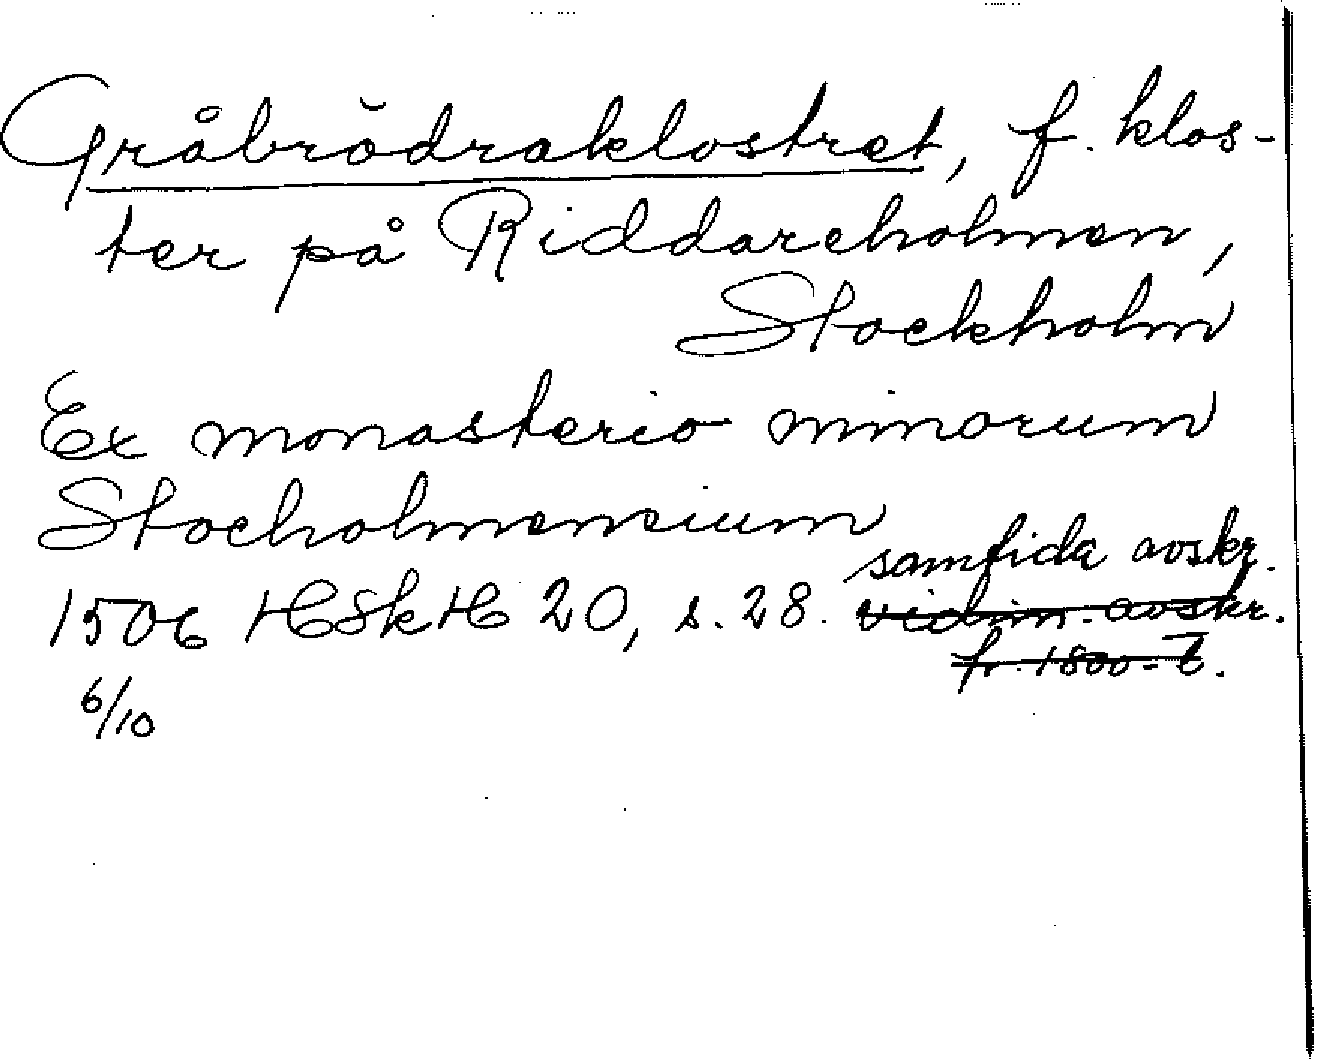 Gråbrödraklostret, f. klos-
ter på Riddareholmen,
Stockholm
Ex monasterio minorum
Stocholmensium
samtida avskr.
1506 HSkH 20, s. 28. vidim. avskr.
fr. 1800-t.
6/10